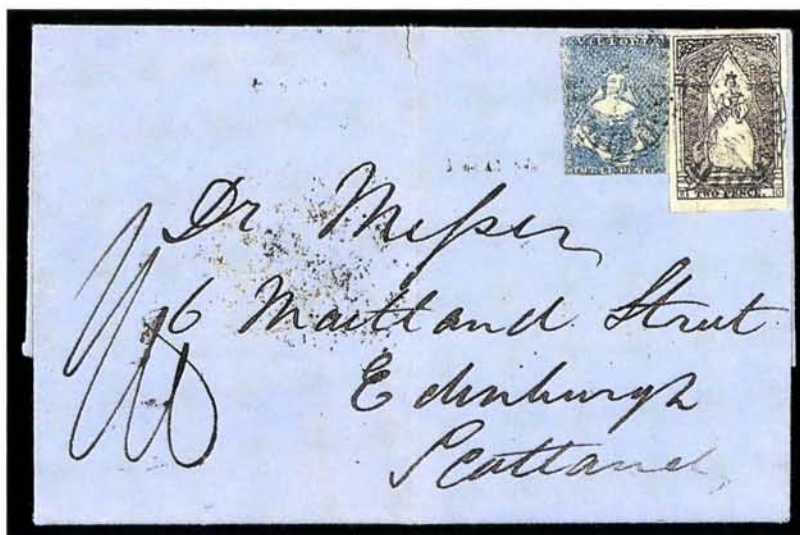 VICTORIA
TWO PENCE.
Dr Messer
6 Maitland Street
Edinburgh
Scotland,